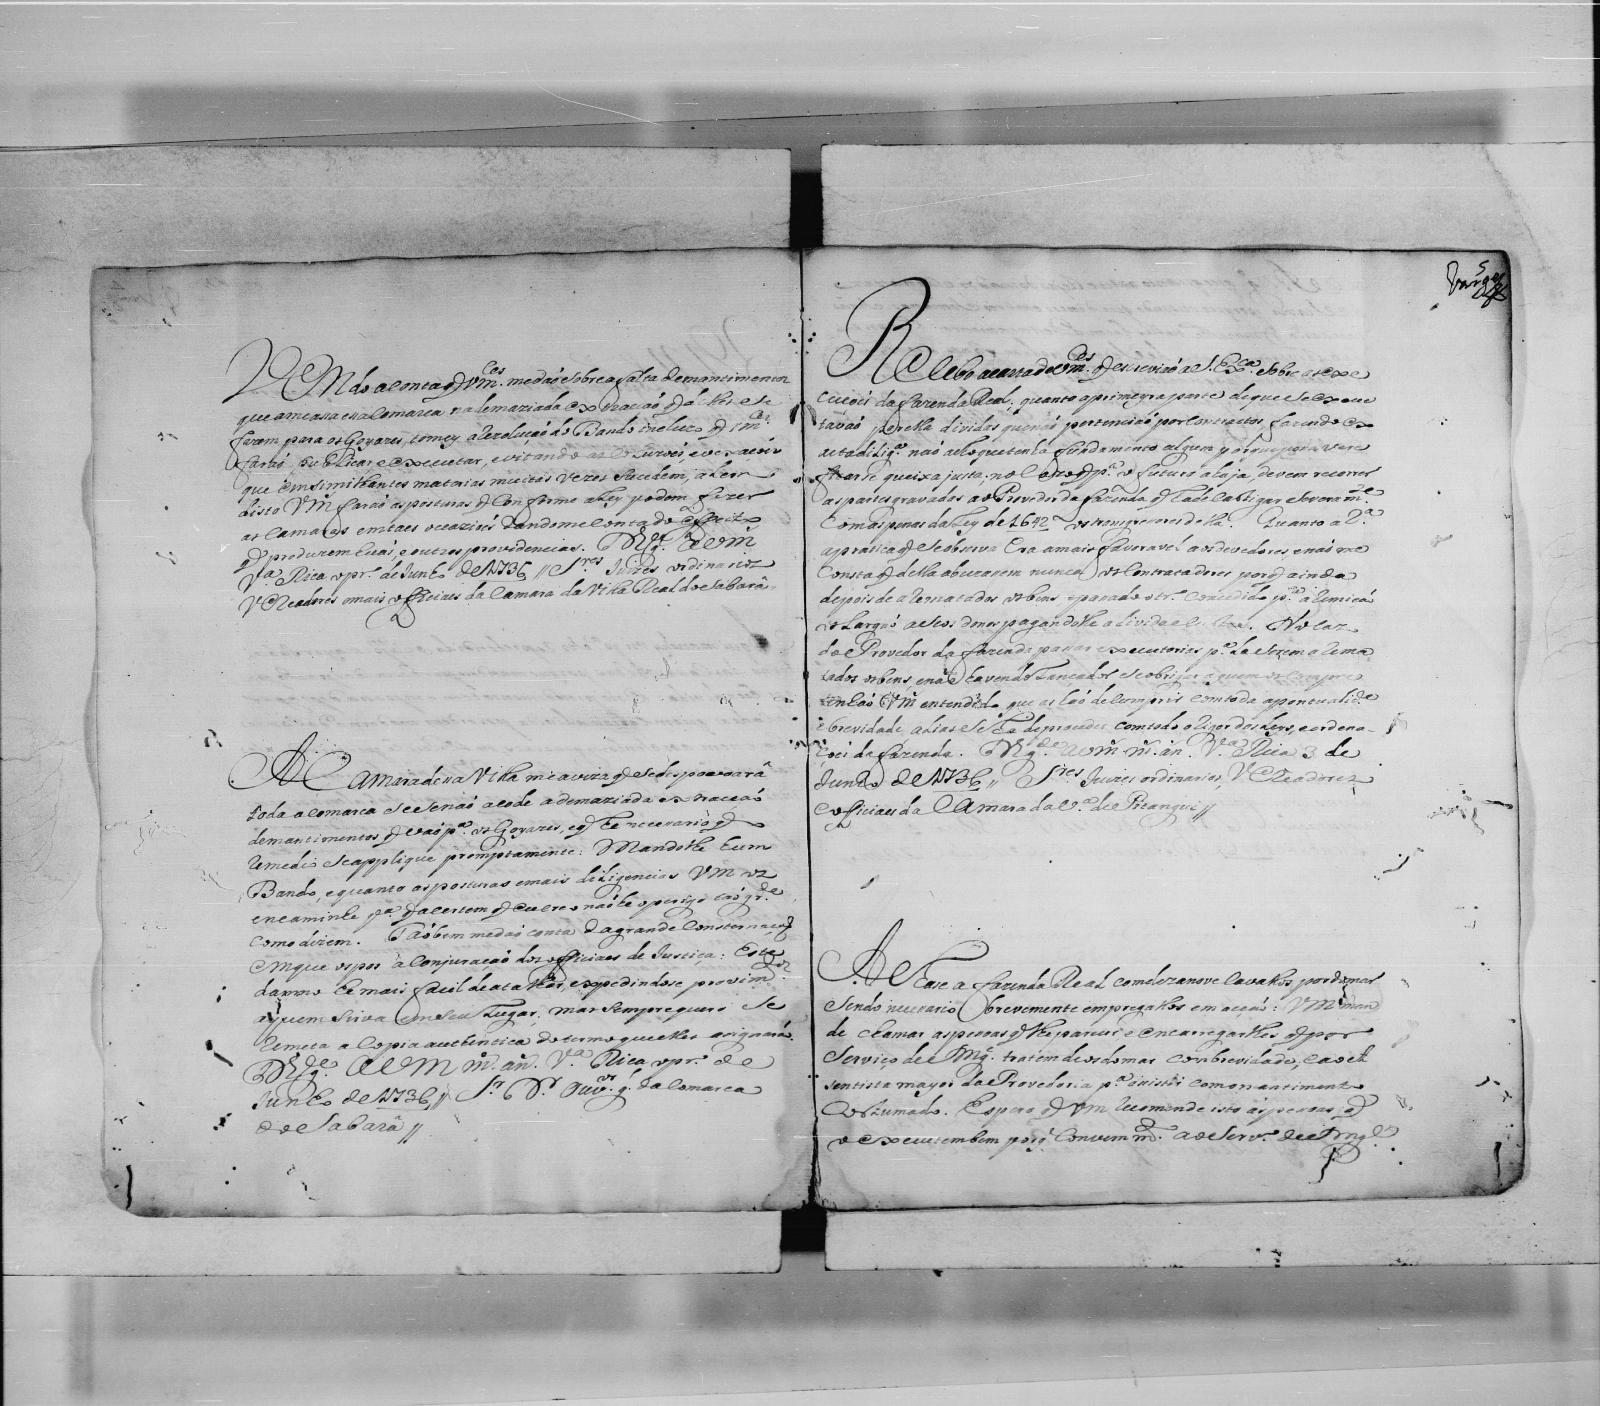 Vendo a conta q̃ Vm.ces me daõ sobre a falta de mantimentos
que ameassa essa Comarca na demaziada extracçaõ q̃ delles se
fazem para os Goyazes, tomey a rezoluçaõ do Bando incluzo q̃ Vm.ces
faraõ publicar e executar, evitando as
que em similhantes materias muitas vezes sucedem, alem
disto Vm. faraõ as posturas q̃ conforme a Ley podem fazer
as Camaras em taes occazioẽs dandome conta do effeito
q̃ produzem huãs, e outras providencias. D.s g.de a Vm
V.a Rica o pr.o de Junho de 1736 // S.res Juizes ordinarios
Vereadores e mais officiaes da Camara da Villa Real do Sabarâ
A Camara dessa Villa me aviza q̃ se despovoarâ
toda a Comarca se se naõ acode a demaziada extracçaõ
de mantimentos q̃ vaõ p.a os Goyazes, e q̃ he necessario q̃
remedio se applique promptamente: Mandolhe hum
Bando, e quanto as posturas e mais diligencias Vm os
encaminhe p.a q̃ acertem q̃ eu creo naõ he o perigo taõ gr.de
como dizem. Taõbem me daõ conta da grande consternaçaõ
em que os pos a conjuraçaõ dos officiaes de Justiça: Este
damno he mais facil de atalhar, expedindose provim.tos
a quem sirva em seu lugar, mas sempre quero se
remeta a copia authentica do termo que elles asignaraõ.
D.s g.de a Vm m.s an.s V.a Rica o pr.o de
Junho de 1736 // S.r D.r Ouv.or g.l da Comarca
do Sabarâ //
5
Recebo a carta de Vm.ces q̃ escreviaõ a S. Ex.ca sobre as exe
cuçoẽs da fazenda Real; quanto a primeyra parte de que se execu
tavaõ por ella dividas que naõ pertenciaõ por Contractos, fazendo ex
acta dilig.a naõ acho que tenha fundamento algum porque para veri
ficarse queixa justa no cazo q̃ p.a o futuro a haja, devem recorrer
as partes gravadas ao Provedor da fazenda q̃ hade castigar severam.te
com as penas da Ley de 1642 os transgressores della. Quanto a 2.a
a pratica q̃ se observa era a mais favoravel aos devedores e naõ me
consta q̃ della abuzassem nunca os Contratadores porq̃ ainda
depois de arrematados os bens e passado o tr.o concedido p.a a remiçaõ
os largaõ a seos donos pagandolhe a divida e custas. No cazo
do Provedor da fazenda passar executorias p.a lâ serem arrema
tados os bens, e naõ havendo lançados se obrigar a quem os compre
tenhaõ Vm entendido que as haõ de cumprir com toda a pontualid.e
e brevidade, alias se ha de proceder com todo o rigor das leys, e ordena-
çoẽs da fazenda. D.s g.de a Vm m.s an.s V.a Rica 3 de
Junho de 1736 // S.res Juizes ordinarios, Vereadores
e officiaes da Camara da V.a de Pitangui //
Achase a fazenda Real com dezanove cavallos por domar
sendo necessario brevemente empregallos em acçaõ: Vm man
de chamar as pessoas q̃ lhe parecer e encarregarlhes q̃ por
serviço de S Mg.e tratem de os domar com brevidade, e ao
sentista mayor da Provedoria p.a assistir com o mantimento
costumado. Espero q̃ Vm recomende isto âs pessoas q̃
o executem bem porq̃ convem m.to ao Serv.o de S Mg.e